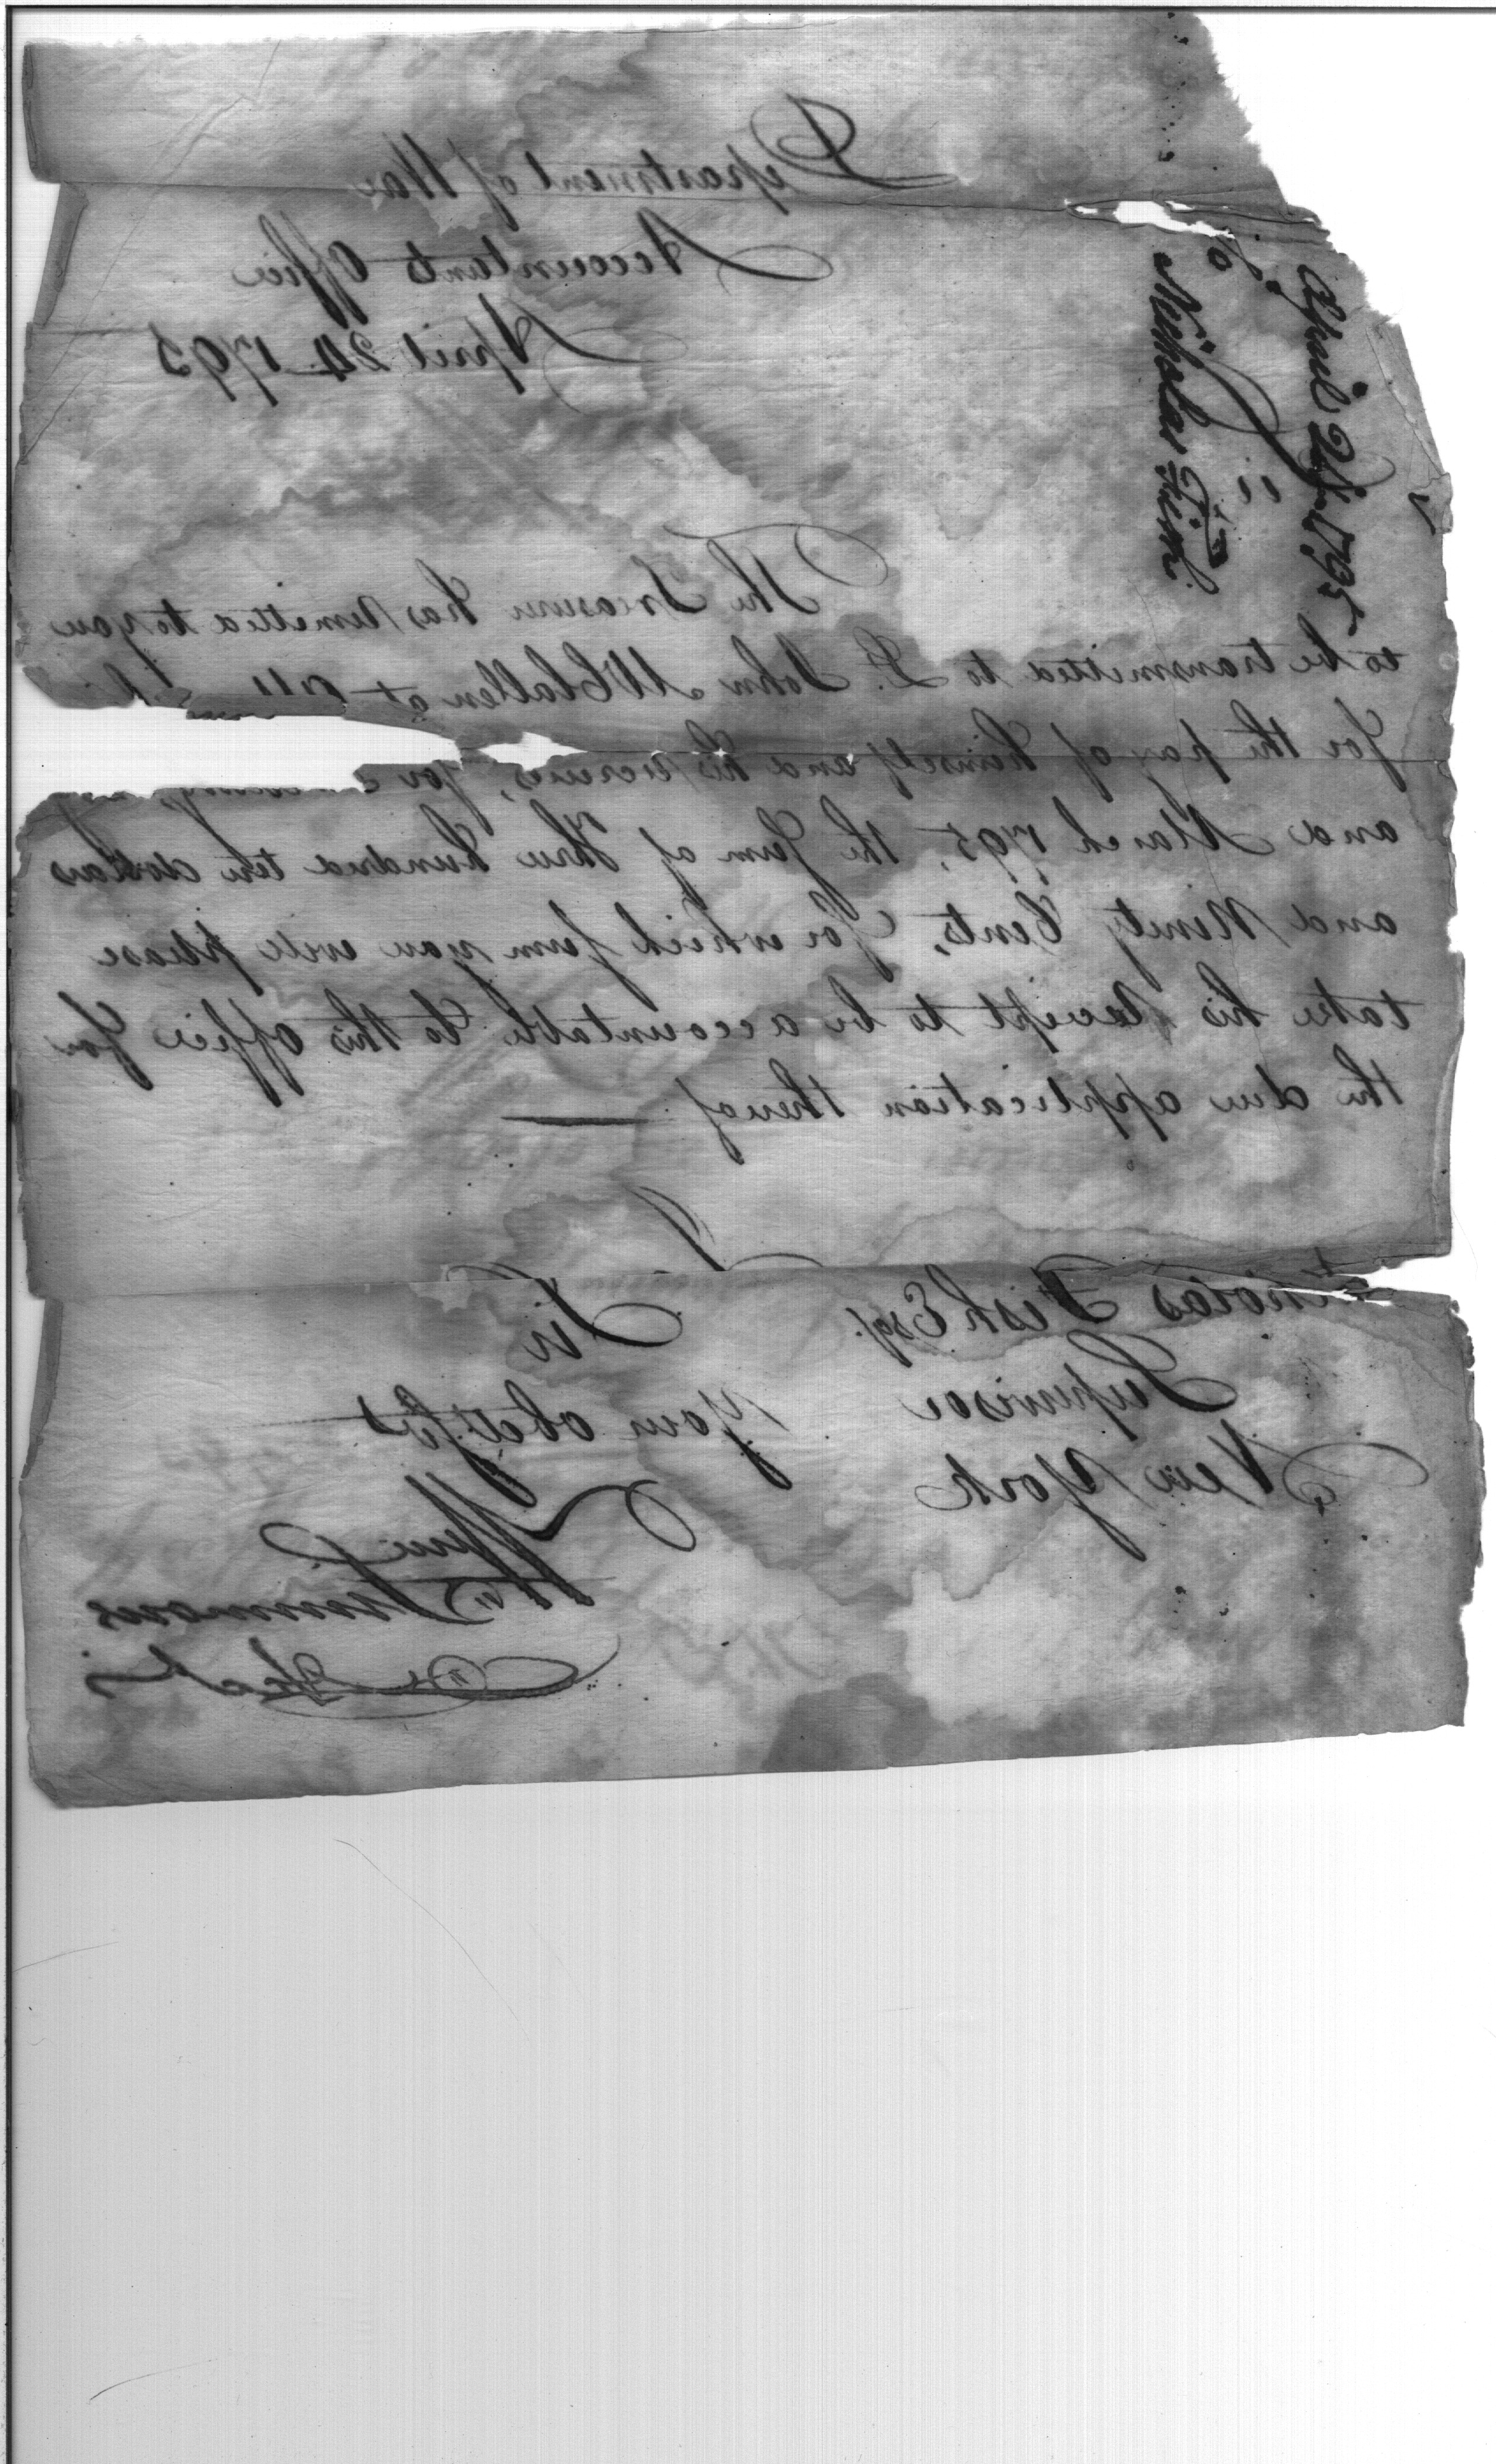 Department of War
Accountants Office
April 24 1795
Sir
The Treasurer has remitted to you
to be transmitted to Lt. John McClallen at
for the pay of himself and his recruits, for
and March 1795, the Sum of Three hundred ten dollars
and Ninety Cents, for which sum you will please
take his Receipt to be accountable to this office for
the due application thereof
I am
Sir
Your obed Sert
Wm Simmons
Nicholas Fish Esqr.
Supervisor
New York
April 24 1795
To
Nicholas Fish